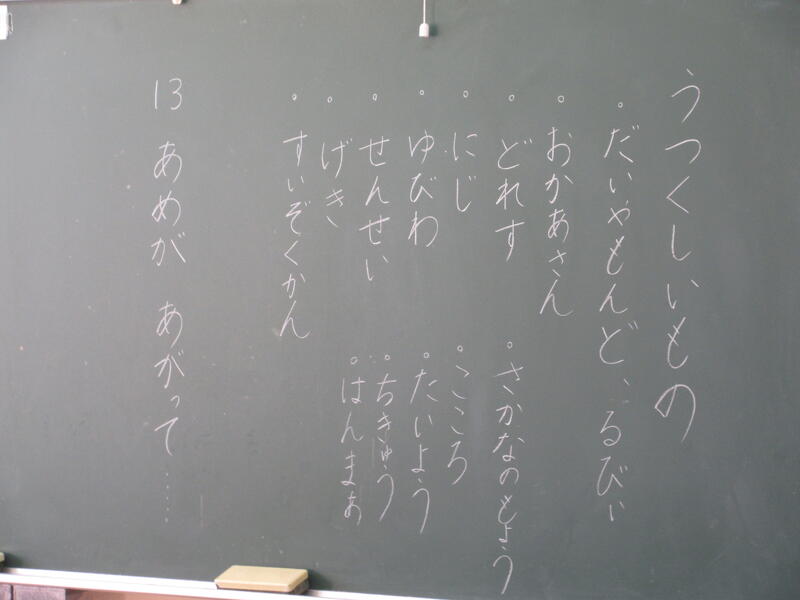 うつくしいもの
。だいやもんど、るびぃ
。おかあさん
。どれす
。さかなのもよう
。にじ
。こころ
。ゆびわ
。たいよう
。せんせい
。ちきゅう
。げき
。はんまあ
。すいぞくかん
13 あめが あがって……